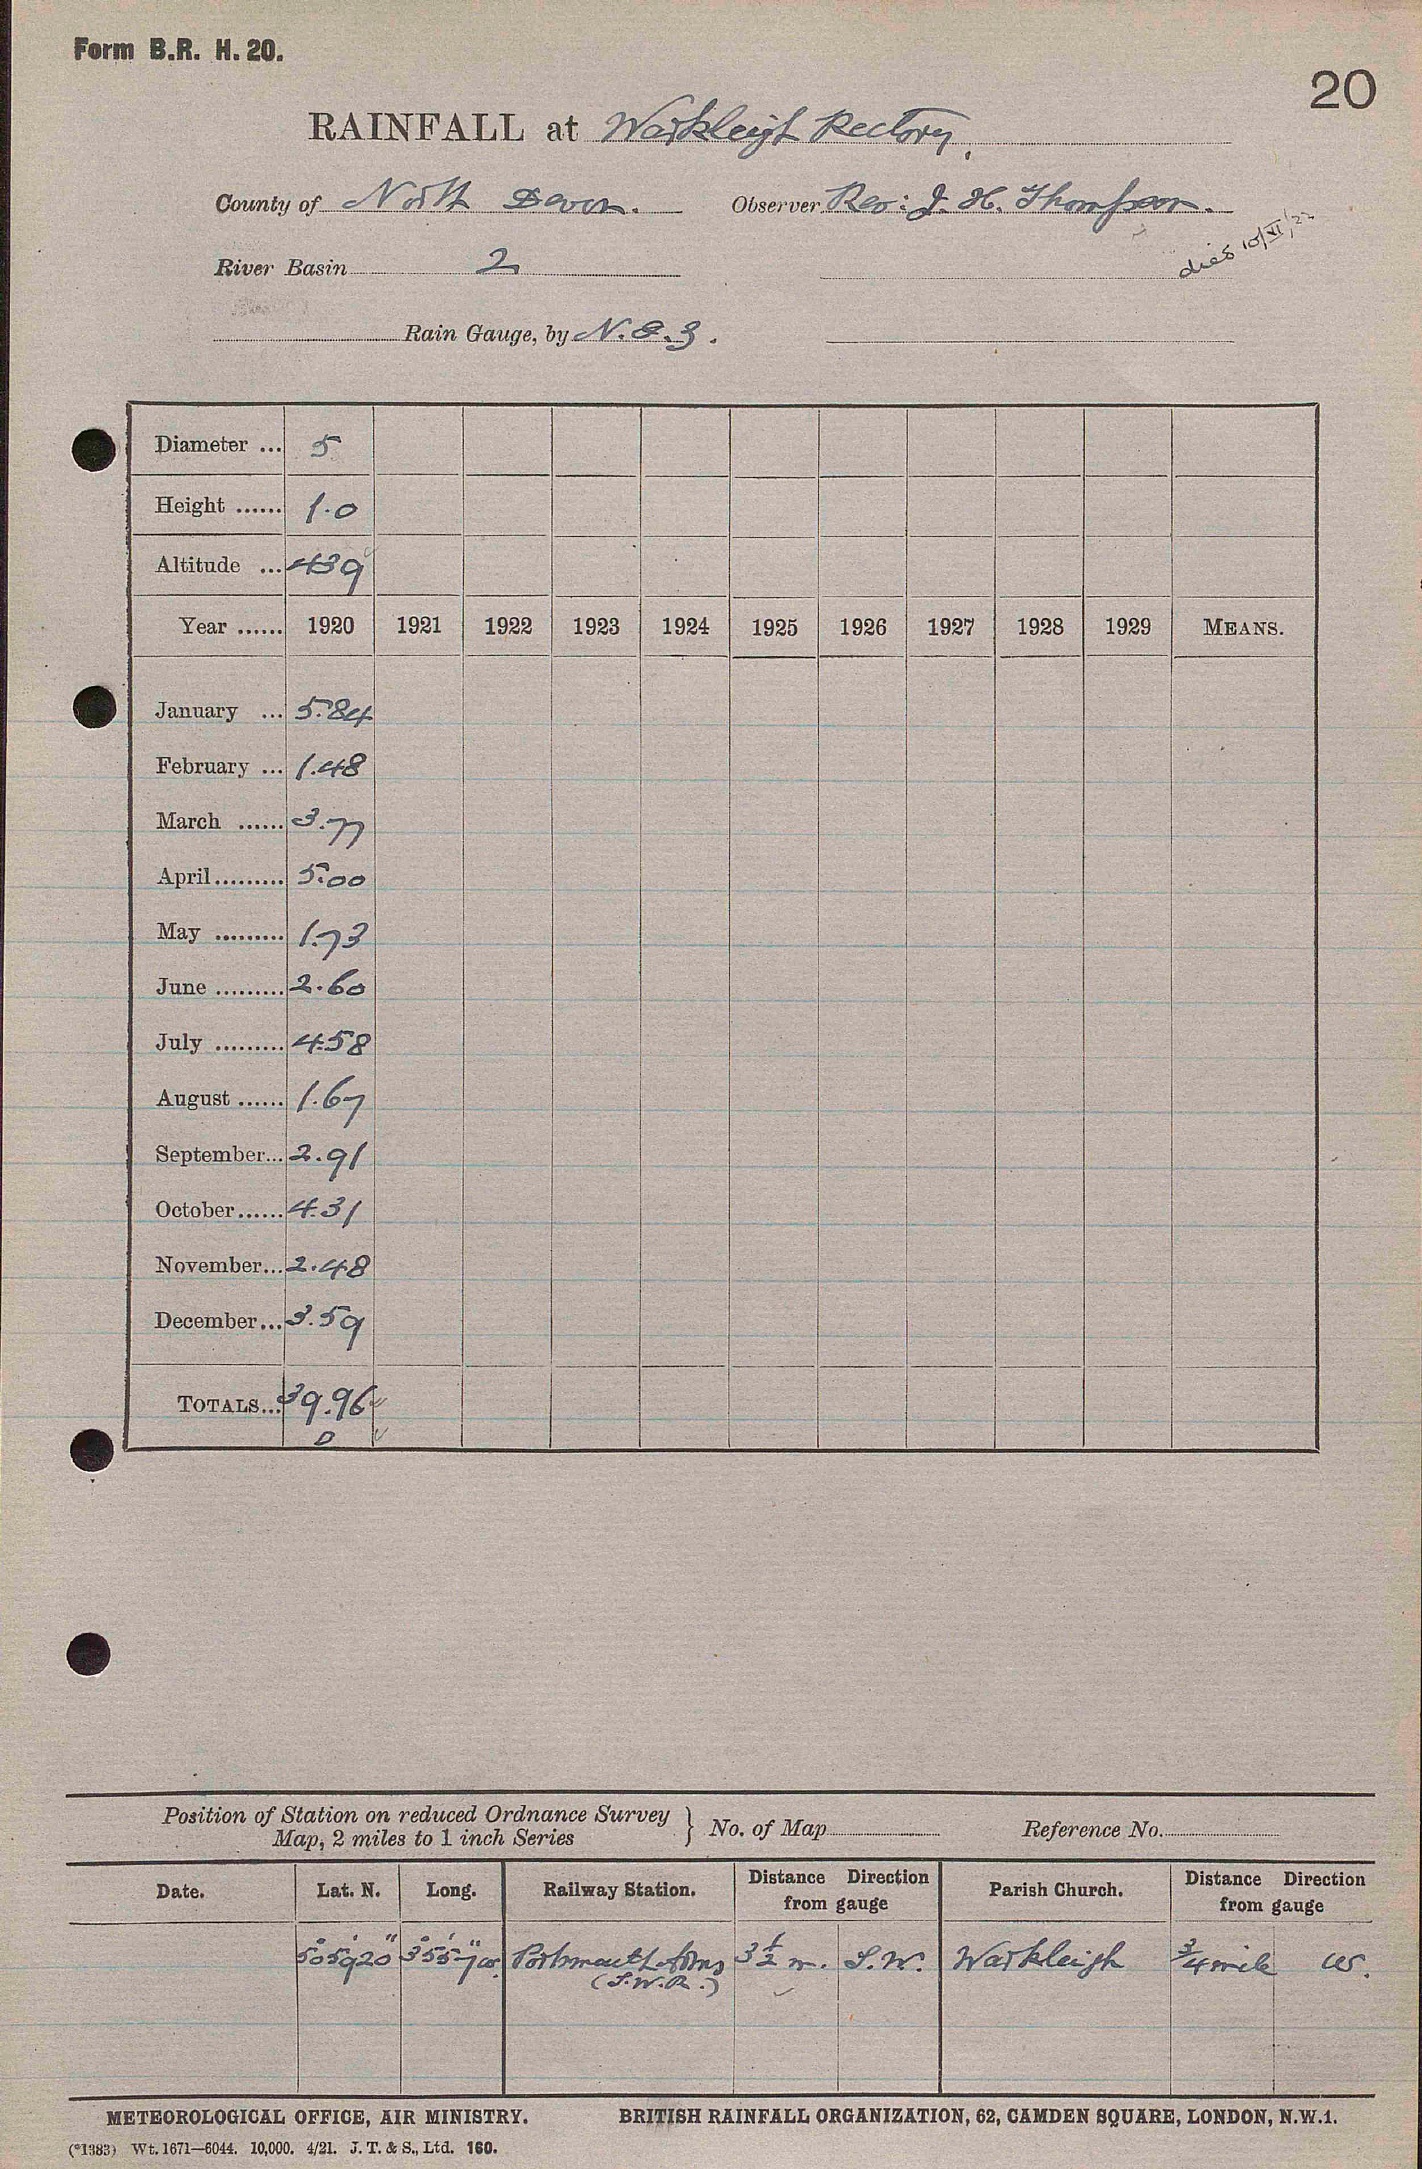 Form B.R. H. 20.
20
RAINFALL at Warkleigh Rectory.
County of North Devon. Observer Rev: J. H. Thompson.
died 10/XI/22
River Basin 2
Rain Gauge, by N. & Z.
Diameter ... 5
Height ...... 1.0
Altitude ... 439
Year ...... 1920 1921 1922 1923 1924 1925 1926 1927 1928 1929 MEANS.
January ... 5.84
February ... 1.48
March ...... 3.77
April ......... 5.00
May ......... 1.73
June ......... 2.60
July ......... 4.58
August ...... 1.67
September... 2.91
October...... 4.31
November... 2.48
December... 3.59
TOTALS... 39.96
D
Position of Station on reduced Ordnance Survey
Map, 2 miles to 1 inch Series } No. of Map Reference No.
Date. Lat. N. Long. Railway Station. Distance Direction from gauge Parish Church. Distance Direction from gauge
50° 59' 20" 3° 55' 7" W. Portsmouth Arms 3 1/2 m. S.W. Warkleigh 3/4 mile W.
(S.W.R.)
METEOROLOGICAL OFFICE, AIR MINISTRY. BRITISH RAINFALL ORGANIZATION, 62, CAMDEN SQUARE, LONDON, N.W.1.
(*1383) Wt. 1671—6044. 10,000. 4/21. J. T. & S., Ltd. 160.